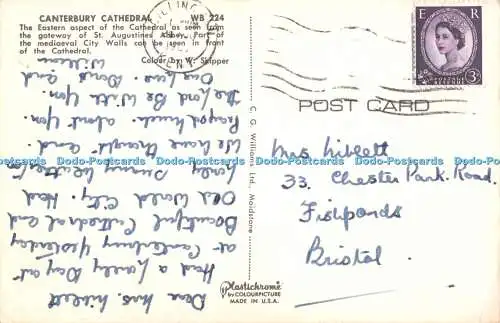 CANTERBURY CATHEDRAL WB 224
The Eastern aspect of the Cathedral as seen from
the gateway of St. Augustines Abbey. Part of
the mediaeval City Walls can be seen in front
of the Cathedral.
Colour by W. Skipper
Dear Mrs. Niblett
Had a lovely Day at
at Canterbury yesterday
Beautiful Cathedral and
Old World City. Had
lovely Sunny Weather
We have thought and
Prayed much about you.
The Lord Be With you.
Our Love. Doris and
William
C. G. Williams, Ltd., Maidstone
Plastichrome®
by COLOURPICTURE
MADE IN U.S.A.
E R
3D
POSTAGE REVENUE
KENT
POST CARD
Mrs Niblett
33. Chester Park. Road.
Fishponds
Bristol.
Dodo-Postcards Dodo-Postcards Dodo-Postcards Dodo-Postcards Dodo-Postcards Dodo-Postcards